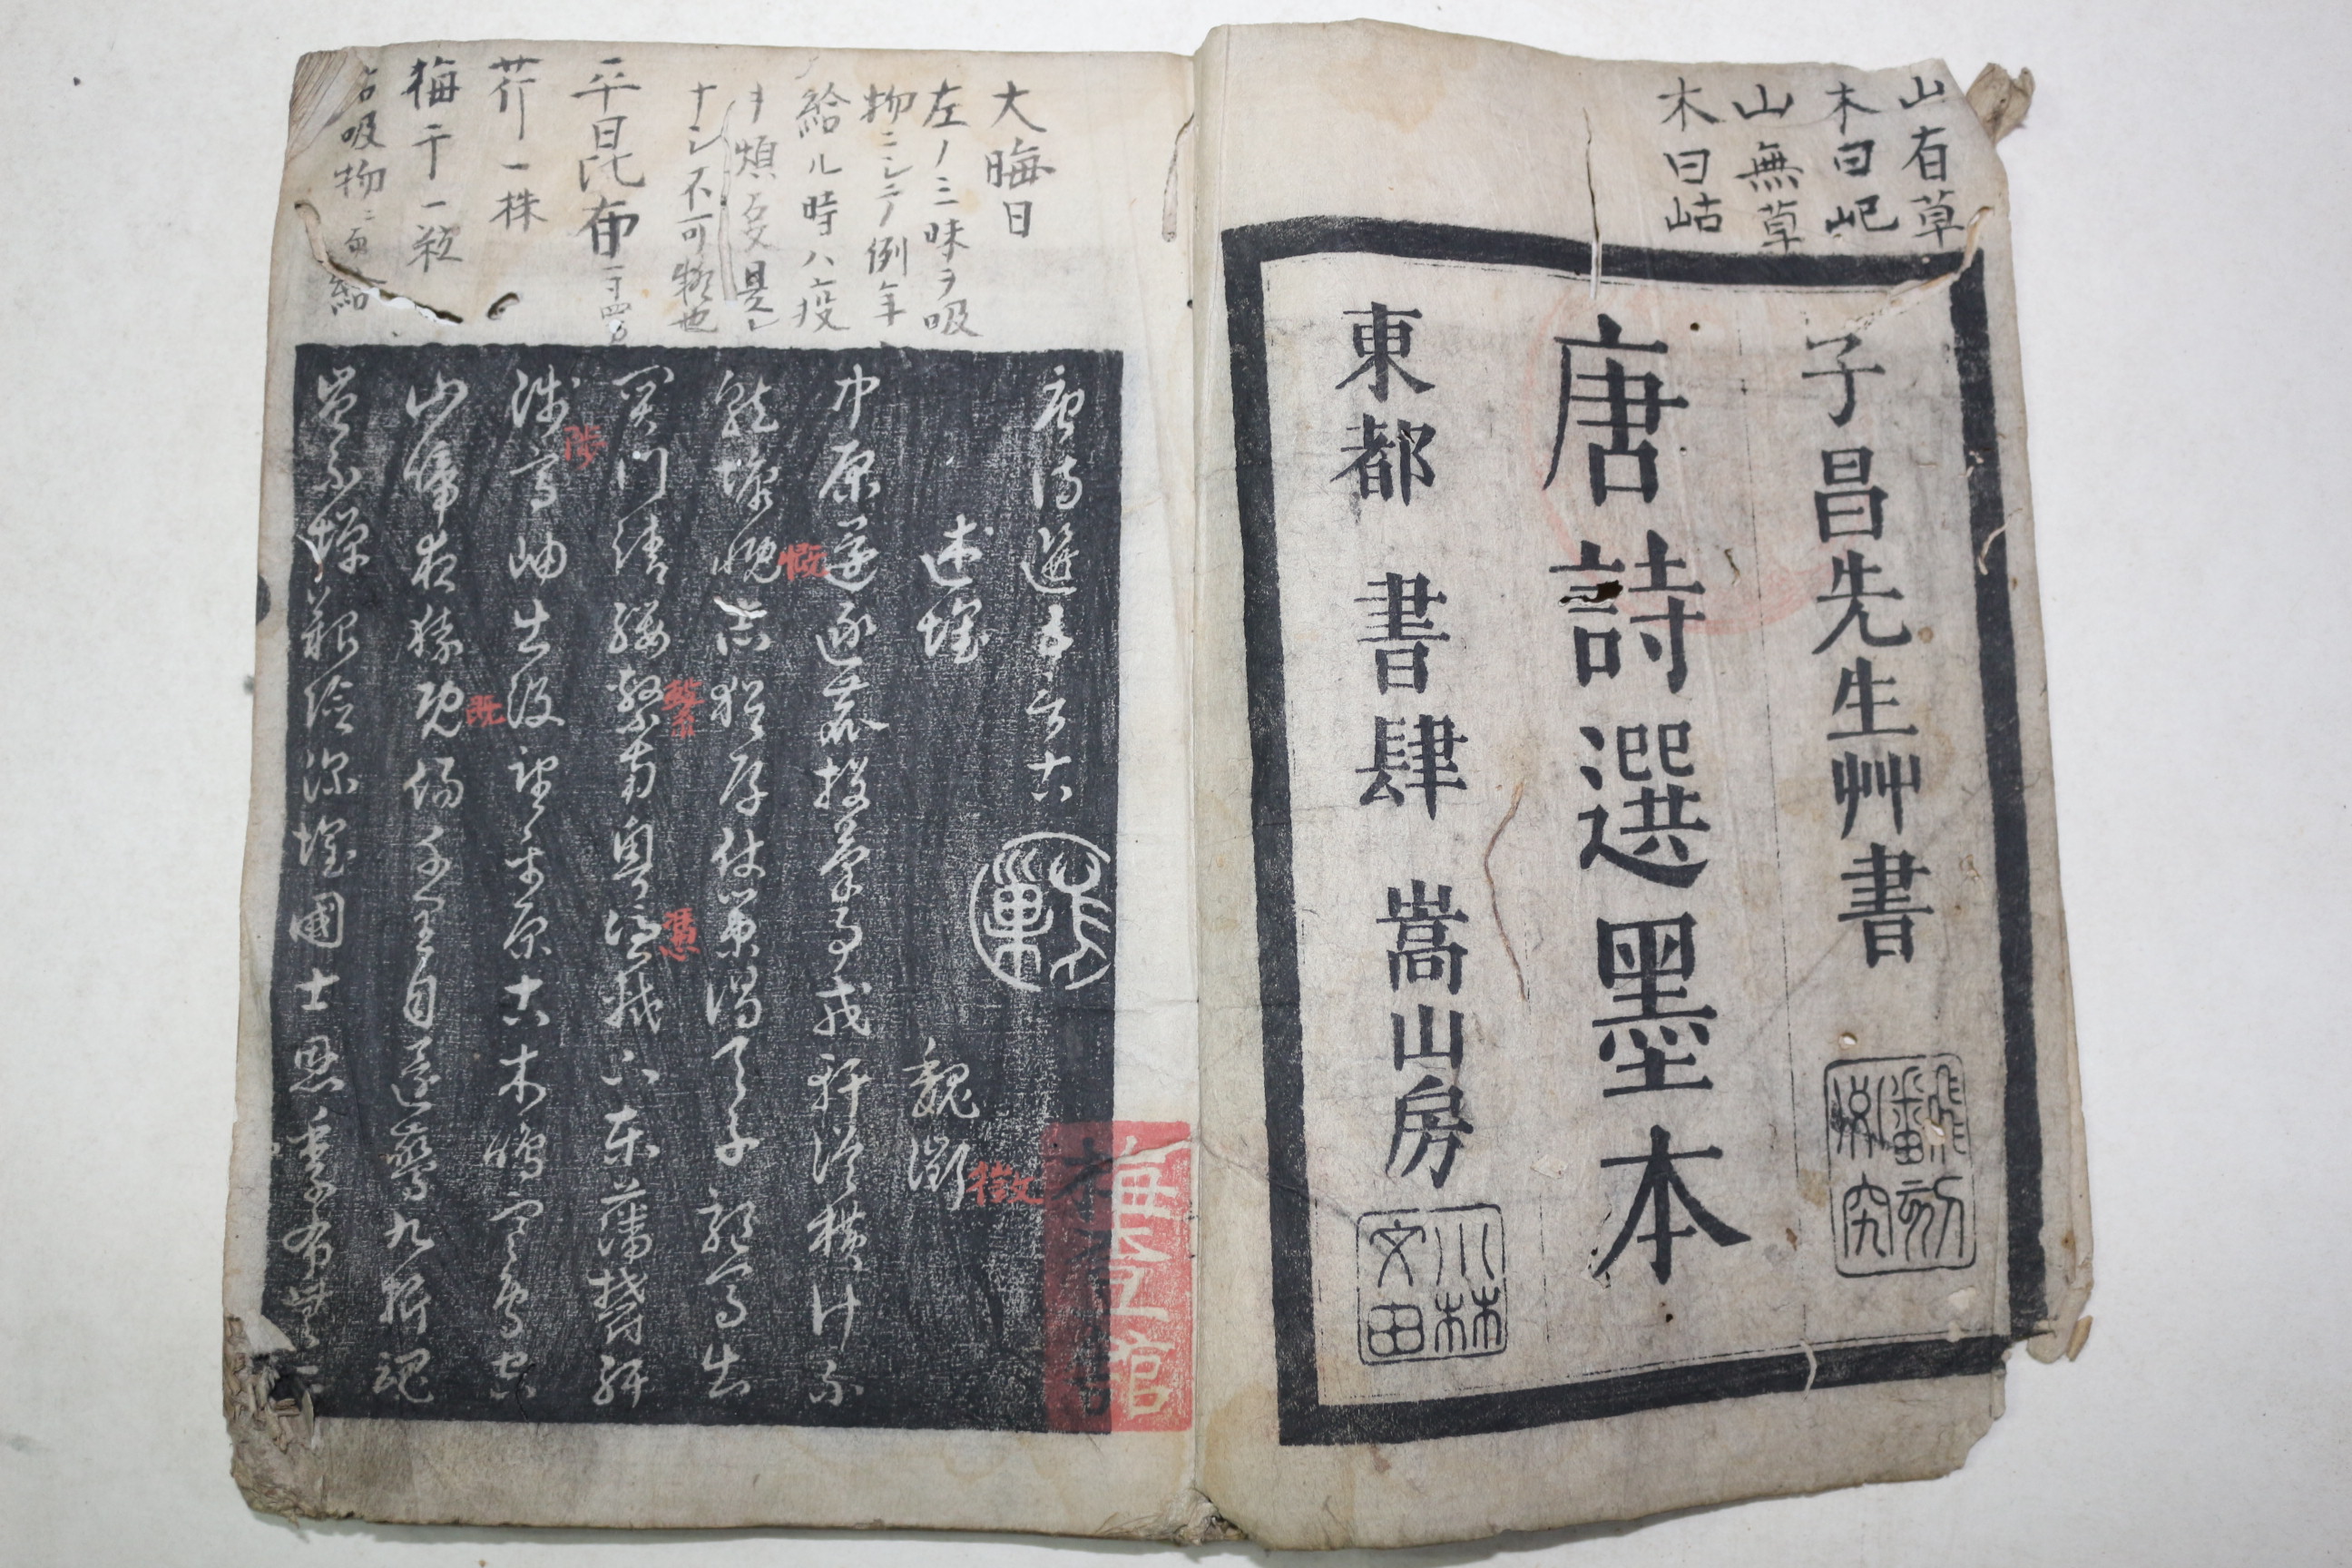 山有草
木曰屺
山無草
木曰岵
子昌先生艸書
唐詩選墨本
東都 書肆 嵩山房
小林
文由
大晦日
左ノ三味ヲ吸
物ニシテ例年
給ル時ハ疫
ヲ煩
ナシ不可疑也
平昆布
芥一株
梅干一粒
右吸物ニ而給
唐詩選五言古
述懐
魏徴
徴
中原還逐鹿投筆事戎軒縱横計不
就慷慨志猶存仗策謁天子驅馬出
慨
関門請纓繫南粤憑軾下東藩鬱紆
繫
憑
陟高岫出没望平原古木鳴寒鳥空
陟
山啼夜猿既傷千里目還驚九折魂
既
豈不憚艱險深懐國士恩季布無二